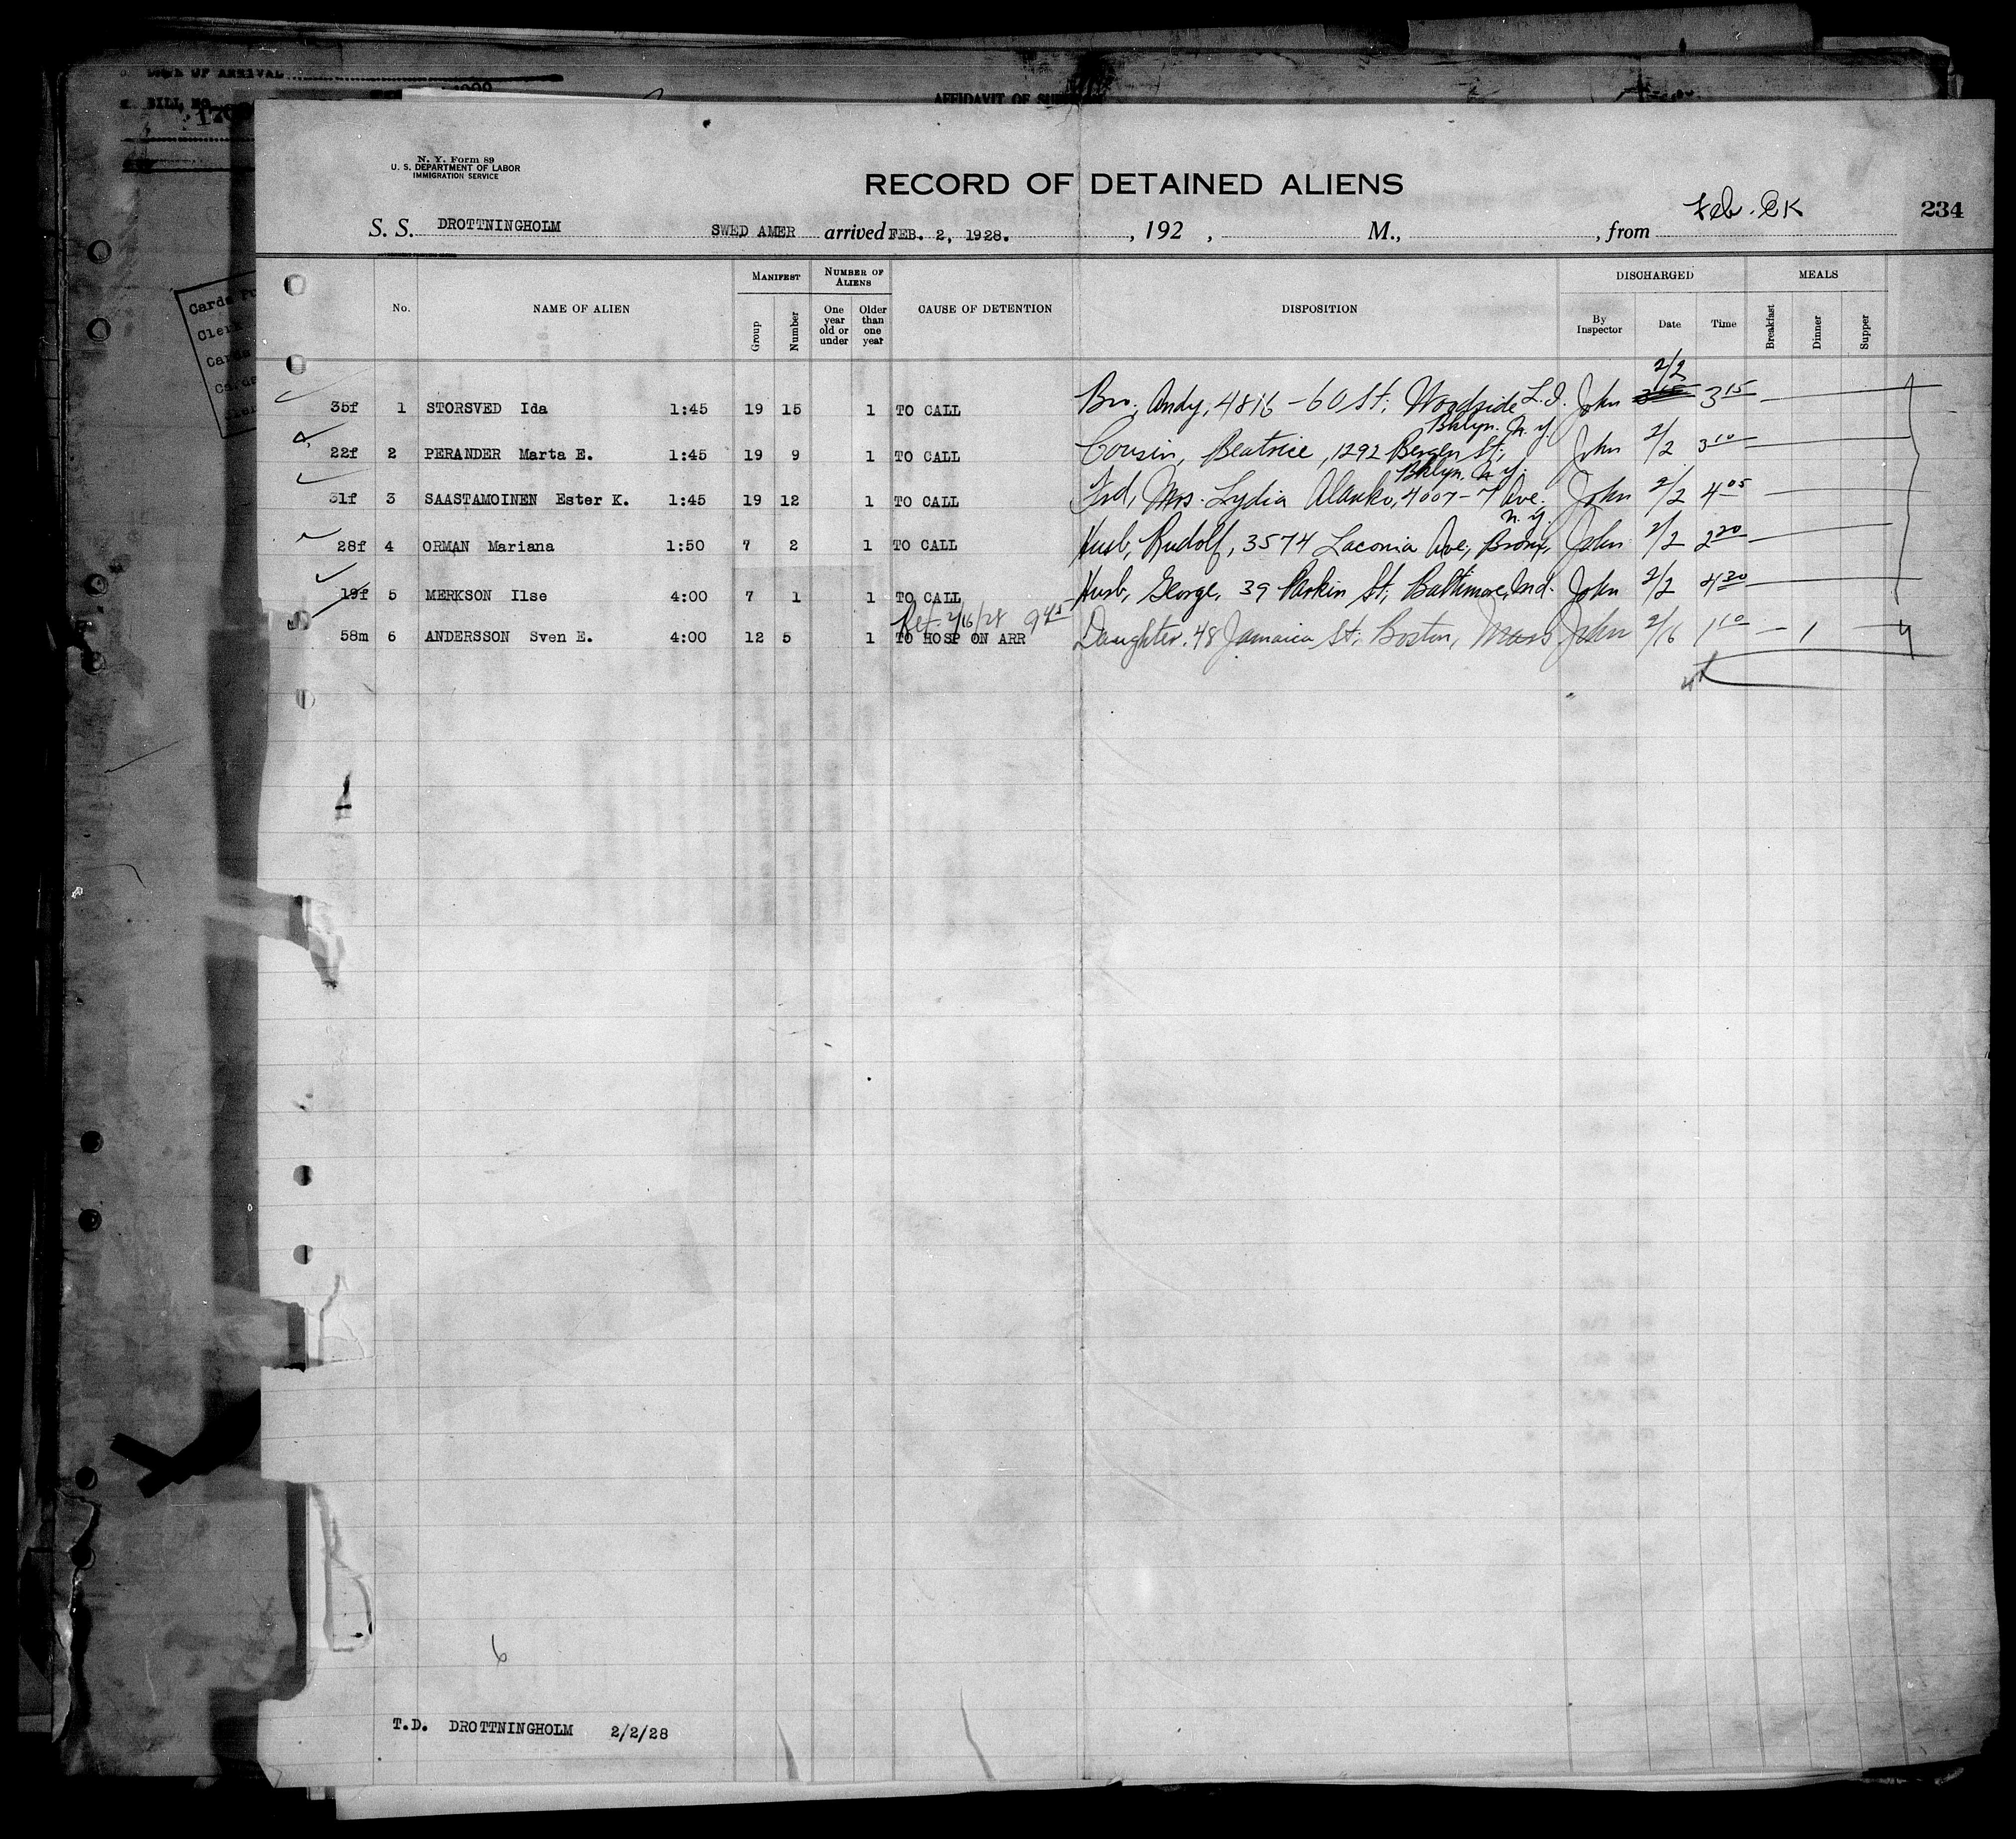 DATE OF ARRIVAL
BILL NO.
AFFIDAVIT OF
Cards
Clerk
Cards
Cards
N. Y. Form 89
U. S. DEPARTMENT OF LABOR
IMMIGRATION SERVICE
RECORD OF DETAINED ALIENS
234
S. S. DROTTNINGHOLM SWED AMER arrived FEB. 2, 1928. , 192 , M., , from
No. NAME OF ALIEN MANIFEST Group Number NUMBER OF ALIENS One year old or under Older than one year CAUSE OF DETENTION DISPOSITION DISCHARGED By Inspector Date Time MEALS Breakfast Dinner Supper
35f 1 STORSVED Ida 1:45 19 15 1 TO CALL Bro, Andy, 4816 - 60 St, Woodside L.I. John 2/2 3 15
22f 2 PERANDER Marta E. 1:45 19 9 1 TO CALL Cousin, Beatrice, 1292 Bergen St, Bklyn. N.Y. John 2/2 3 10
31f 3 SAASTAMOINEN Ester K. 1:45 19 12 1 TO CALL Frd, Mrs. Lydia Alanko, 4007 - 7 Ave. Bklyn. N.Y. John 2/2 4 05
28f 4 ORMAN Mariana 1:50 7 2 1 TO CALL Husb, Rudolf, 3574 Laconia Ave, Bronx, N.Y. John 2/2 2 20
19f 5 MERKSON Ilse 4:00 7 1 1 TO CALL Husb, George, 39 Parkin St, Baltimore, Md. John 2/2 4 30
Ret. 2/16/28 9 45
58m 6 ANDERSSON Sven E. 4:00 12 5 1 TO HOSP ON ARR Daughter, 48 Jamaica St, Boston, Mass John 2/16 1 10 1
6
T.D. DROTTNINGHOLM 2/2/28